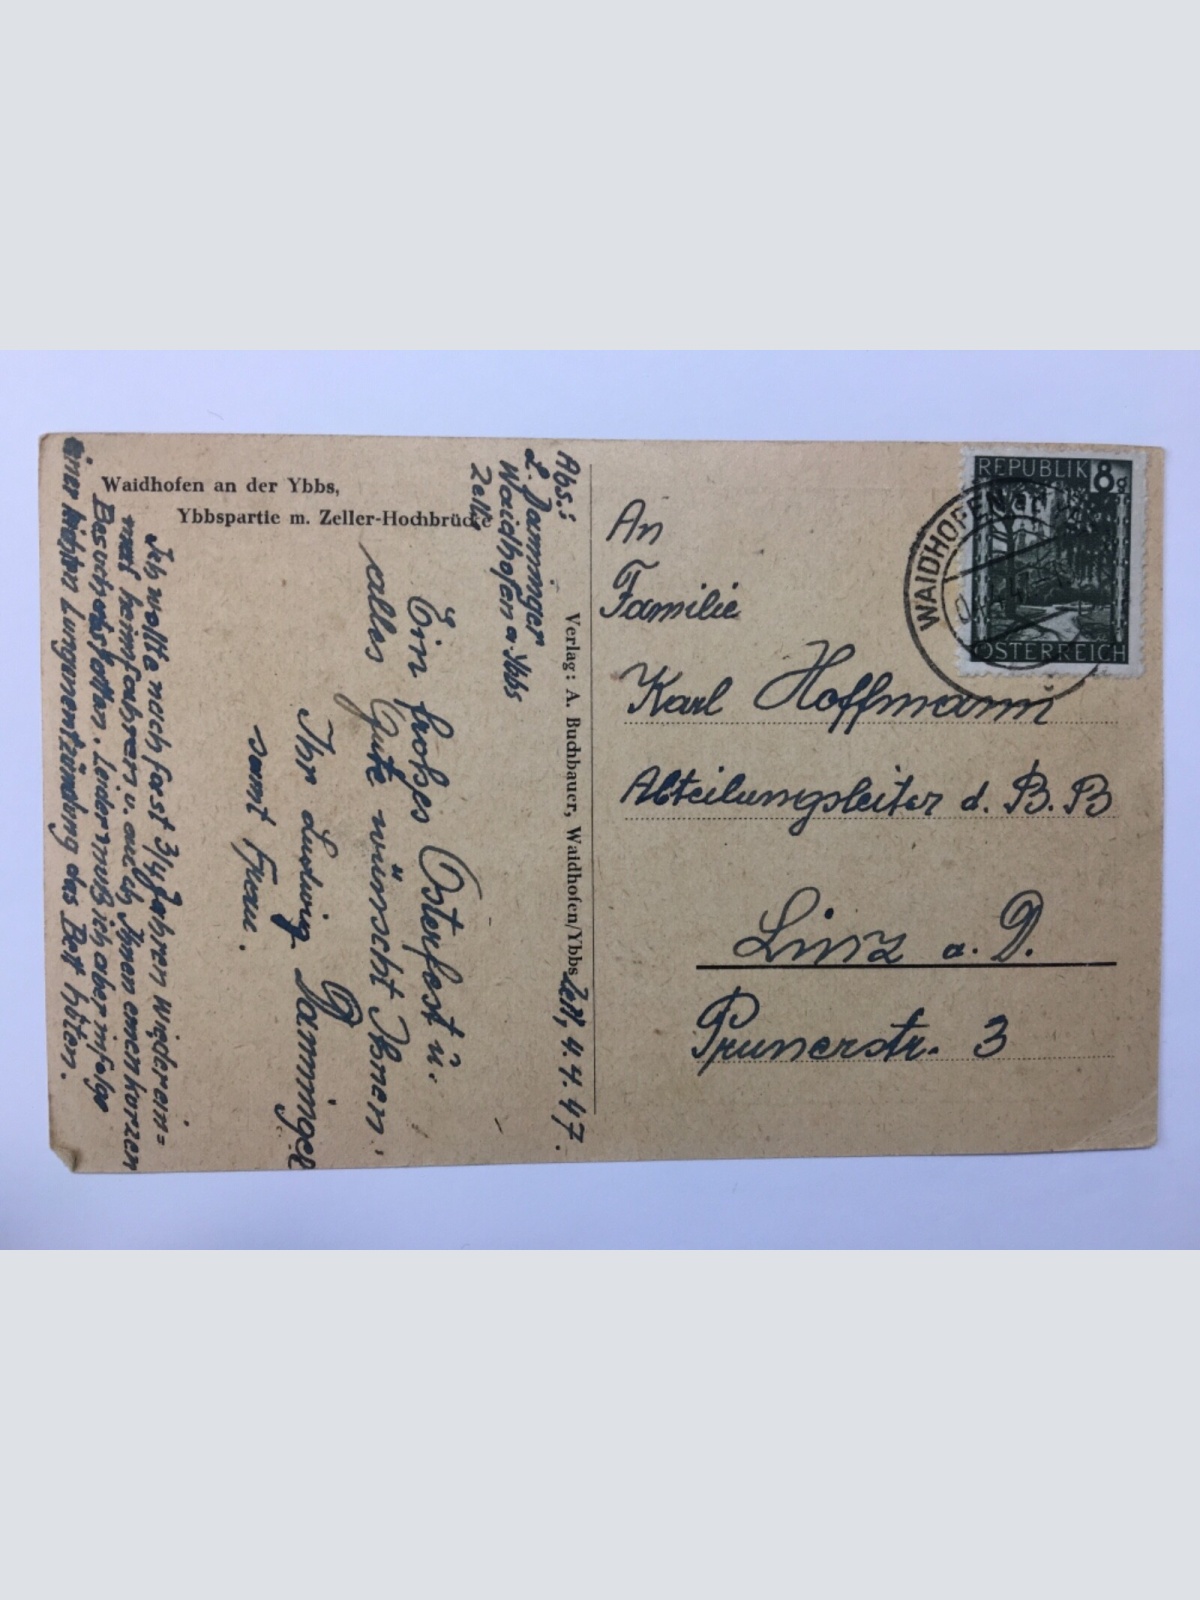 Waidhofen an der Ybbs,
Ybbspartie m. Zeller-Hochbrücke
Abs.:
L. Danninger
Waidhofen a. Ybbs
Zell,
Verlag: A. Buchbauer, Waidhofen/Ybbs
Zell, 4. 4. 47.
Ein frohes Osterfest u.
alles Gute wünscht Ihnen
Ihr Ludwig Danninger
samt Frau.
Ich wollte nach fast 3/4 Jahren wieder ein=
mal heimfahren u. auch Ihnen einen kurzen
Besuch abstatten. Leider muß ich aber infolge
einer Lungenentzündung das Bett hüten.
REPUBLIK 8g
ÖSTERREICH
WAIDHOFEN
An
Familie
Karl Hoffmann
Abteilungsleiter d. B. B
Linz a. D.
Prunerstr. 3